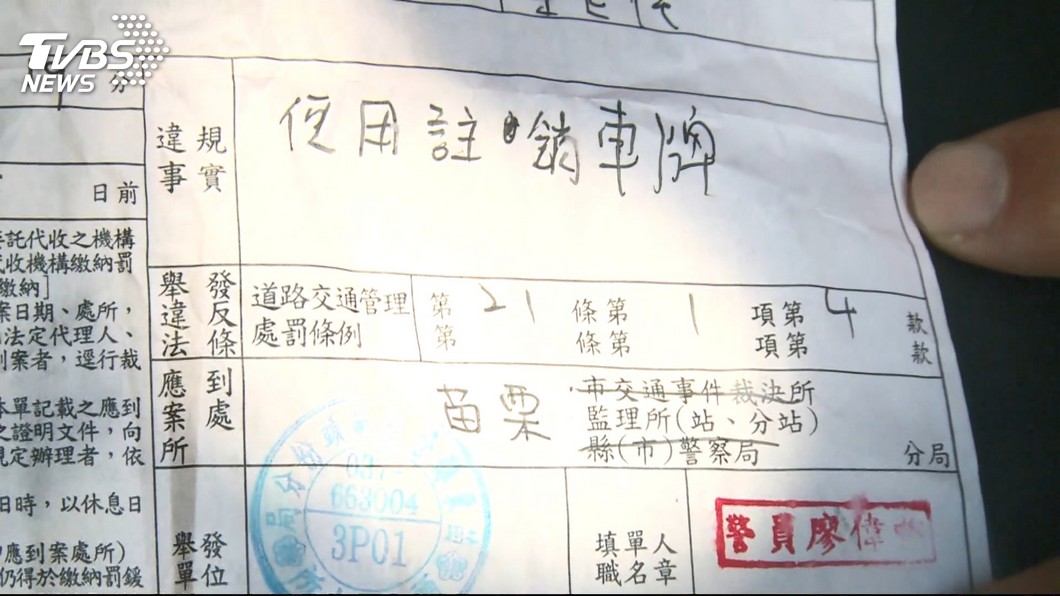 TVBS
NEWS
分
日前
託代收之機構
收機構繳納罰
繳納]
案日期、處所，
法定代理人、
到案者，逕行裁
本單記載之應到
之證明文件，向
規定辦理者，依
日時，以休息日
應到案處所)
仍得於繳納罰鍰
違規事實
使用註銷車牌
舉發違反法條
道路交通管理處罰條例
第 21 條第 1 項第 4 款
第 條第 項第 款
應到案處所
苗栗
市交通事件裁決所
監理所(站、分站)
縣(市)警察局 分局
舉發單位
037
663004
3P01
填單人
職名章
警員廖偉